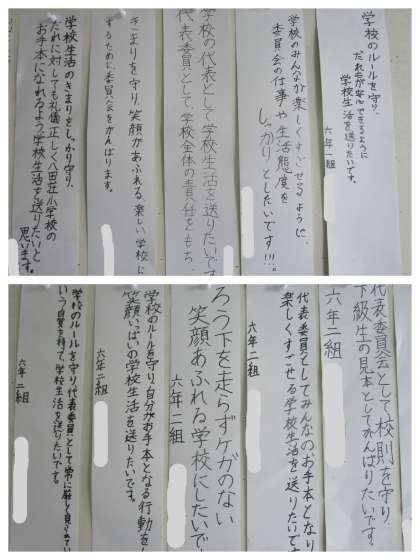 学校のルールを守り、
だれもが安心できるように
学校生活を送りたいです。
六年一組
学校のみんなが楽しくすごせるように、
委員会の仕事や生活態度を
しっかりとしたいです!!!。
学校の代表として学校生活を送りたいです
代表委員として、学校全体の責任をもち、
きまりを守り、笑顔があふれる、楽しい学校に
するために委員会をがんばります。
学校生活のきまりをしっかり守り、
だれに対しても礼儀正しく八田荘小学校の
お手本になれるよう学校生活を送りたいと
思います。
代表委員会として校則を守り、
下級生の見本としてがんばりたいです。
六年二組
代表委員としてみんなのお手本となり
楽しくすごせる学校生活を送りたいです
六年二組
ろう下を走らずケガのない
笑顔あふれる学校にしたいで
六年二組
学校のルールを守り、自分がお手本となる行動を
笑顔いっぱいの学校生活を送りたいです。
六年二組
学校のルールを守り代表委員として常に厳しく見られて
いう自覚を持って、学校生活を送りたいです。
六年二組